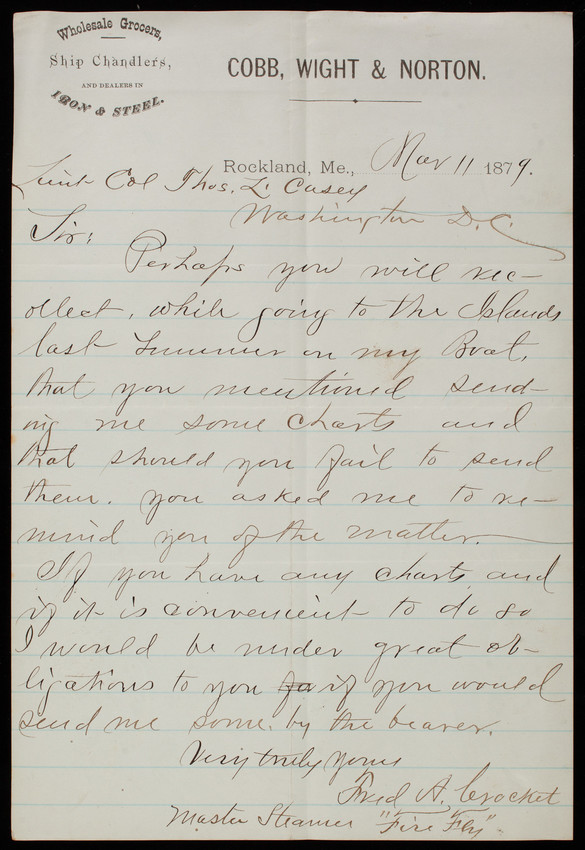 Wholesale Grocers,
Ship Chandlers,
AND DEALERS IN
IRON & STEEL.
COBB, WIGHT & NORTON.
Rockland, Me., Mar 11 1879.
Lieut Col Thos. L. Casey
Washington D.C.
Sir:
Perhaps you will rec-
ollect, while going to the Islands
last Summer on my Boat,
that you mentioned send-
ing me some charts and
that should you fail to send
them, you asked me to re-
mind you of the matter.
If you have any charts, and
if it is convenient to do so
I would be under great ob-
ligations to you fo if you would
send me some, by the bearer.
Very truly yours
Fred A. Crocket
Master Steamer "Fire Fly".